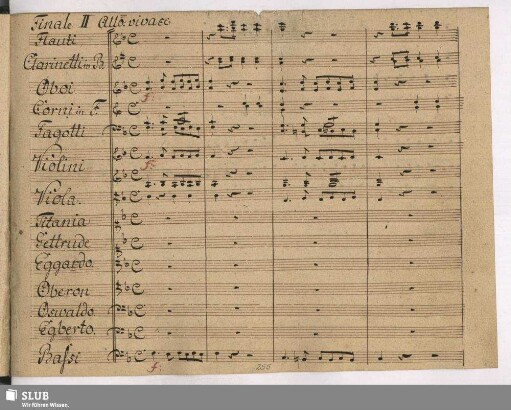 Finale II Allo. vivace
Flauti
Clarinetti in B.
Oboi
f:
Corni in F.
Fagotti
Violini
f:
Viola.
Titania
Gettrude
Eggardo.
Oberon
Oswaldo
Egberto.
Bassi
f:
SLUB
Wir führen Wissen.